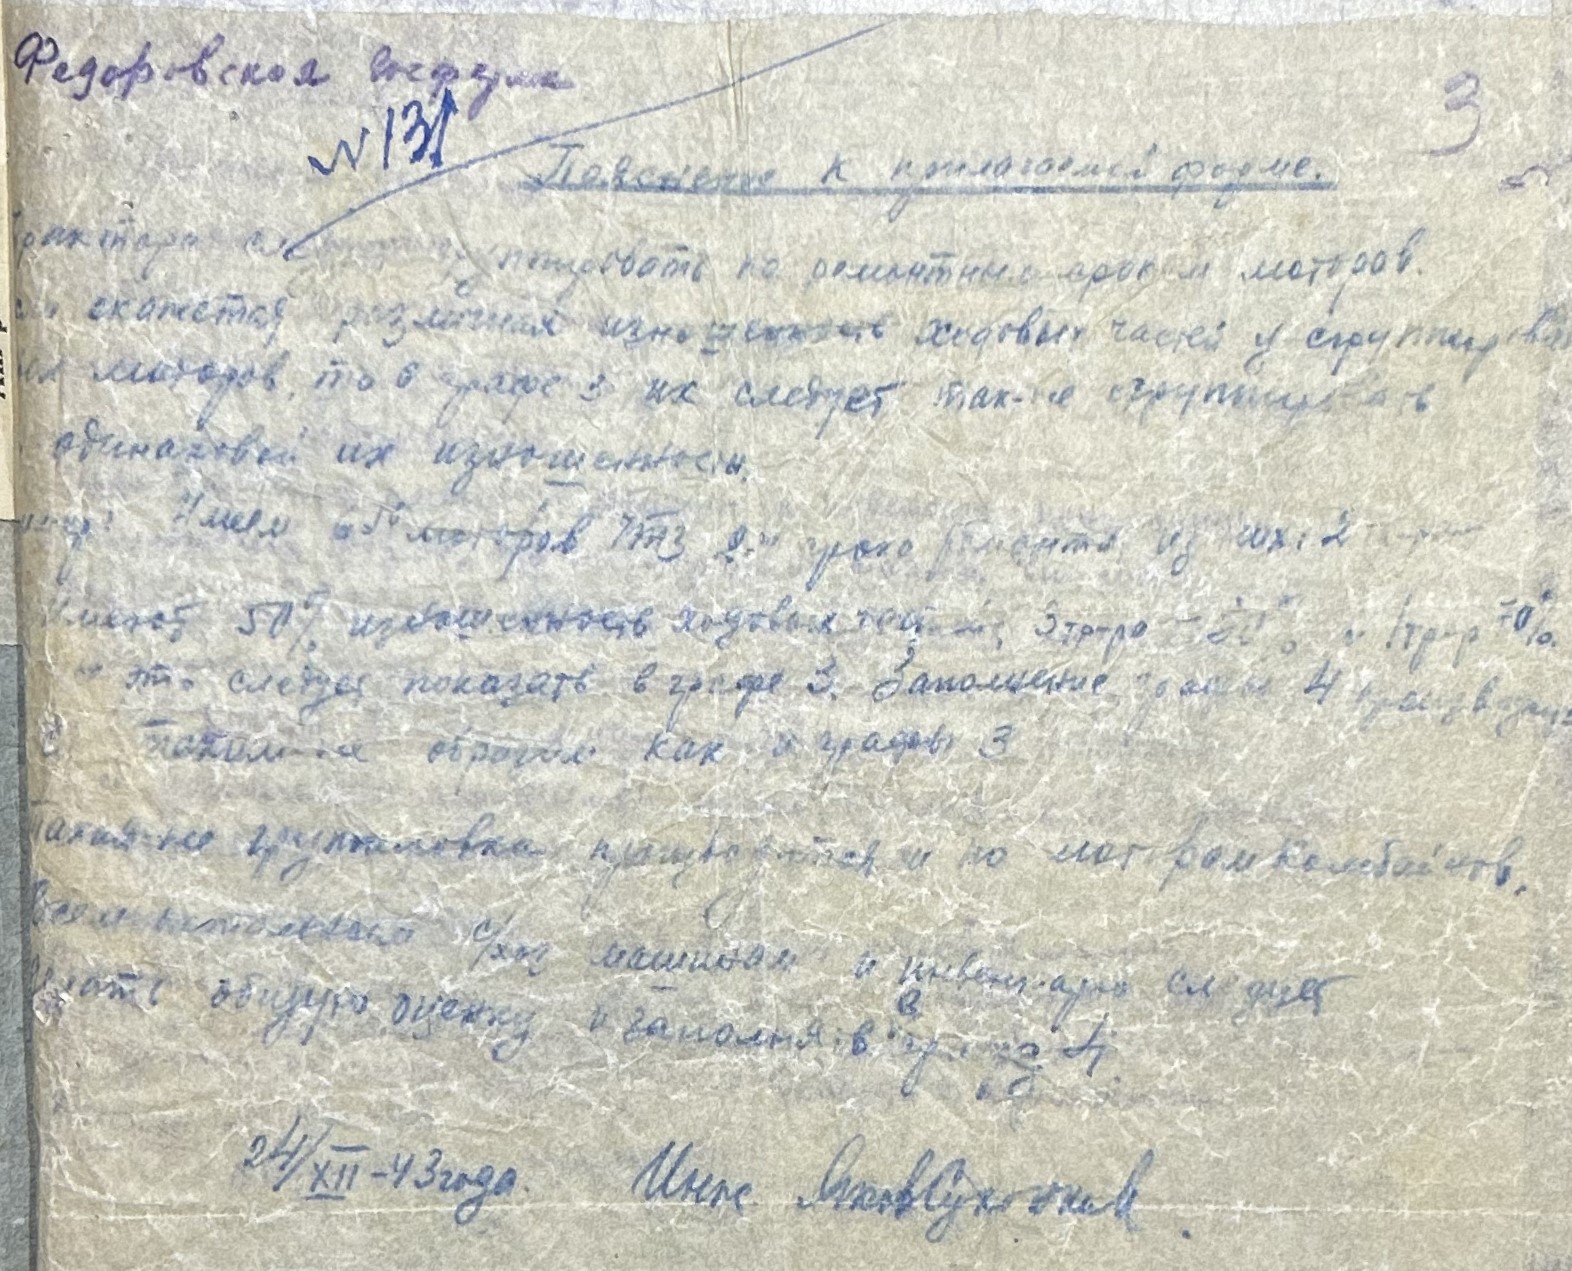 Федоровская Госферма
3
№ 131
Пояснение к прилагаемой форме.
Трактора группировать по ремонтным срокам моторов.
скажется различная изношенность ходовых частей у сгруппирован
моторов, то в графе 3 их следует также сгруппировать
одинаковой их изношенности.
Имеем моторов ЧТЗ 2й срока ремонта, из них: 2
Имеют 50% изношенность ходовых частей, 3 тр-ра и 1 тр-р 70%.
то следует показать в графе 3. Заполнение графы 4
таким-же образом как и графы 3
Такая-же группировка производится и по моторам комбайнов.
с/хоз машинам и инвентарю следует
дать общую оценку и заполнять в графе 4
24/XII-43 года. Инж.